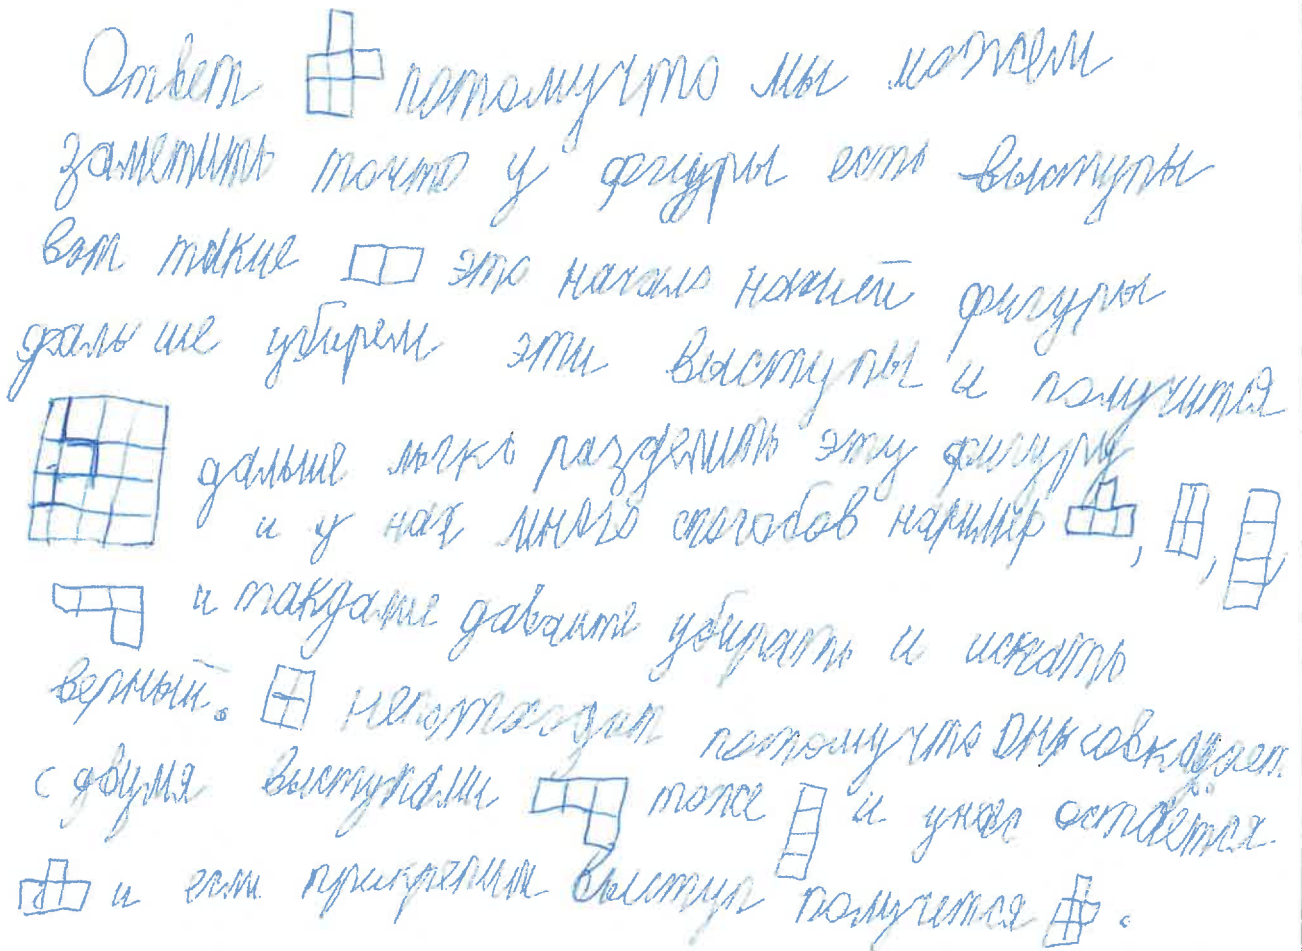 Ответ потомучто мы можем
заметить точто у фигуры есть выступы
вот такие это начало нашей фигуры
дальше убирем эти выступы и получится
дальше легко разделить эту фигуру
и у нас много способов например , , ,
и такдале давайте убирать и искать
верный. неподходит потомучто он
с двумя выступами тоже и унас остаётся
и если прикрепим выступ получется .